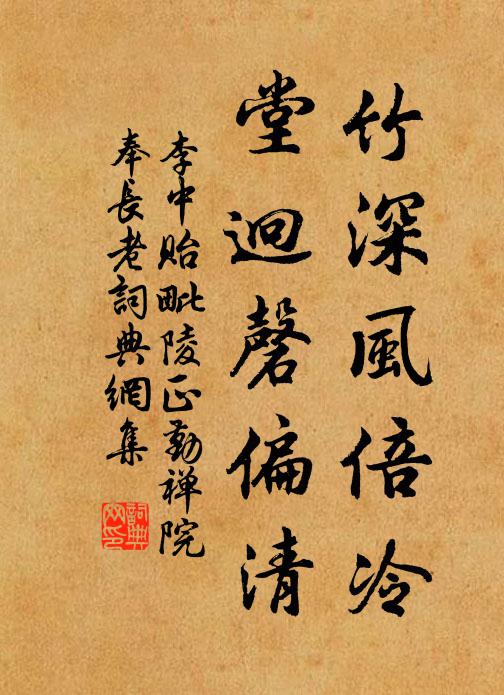 竹深風倍冷
堂迥磬偏清
李中貽毗陵正勤禅院
奉長老詞典網集
詞典
网印